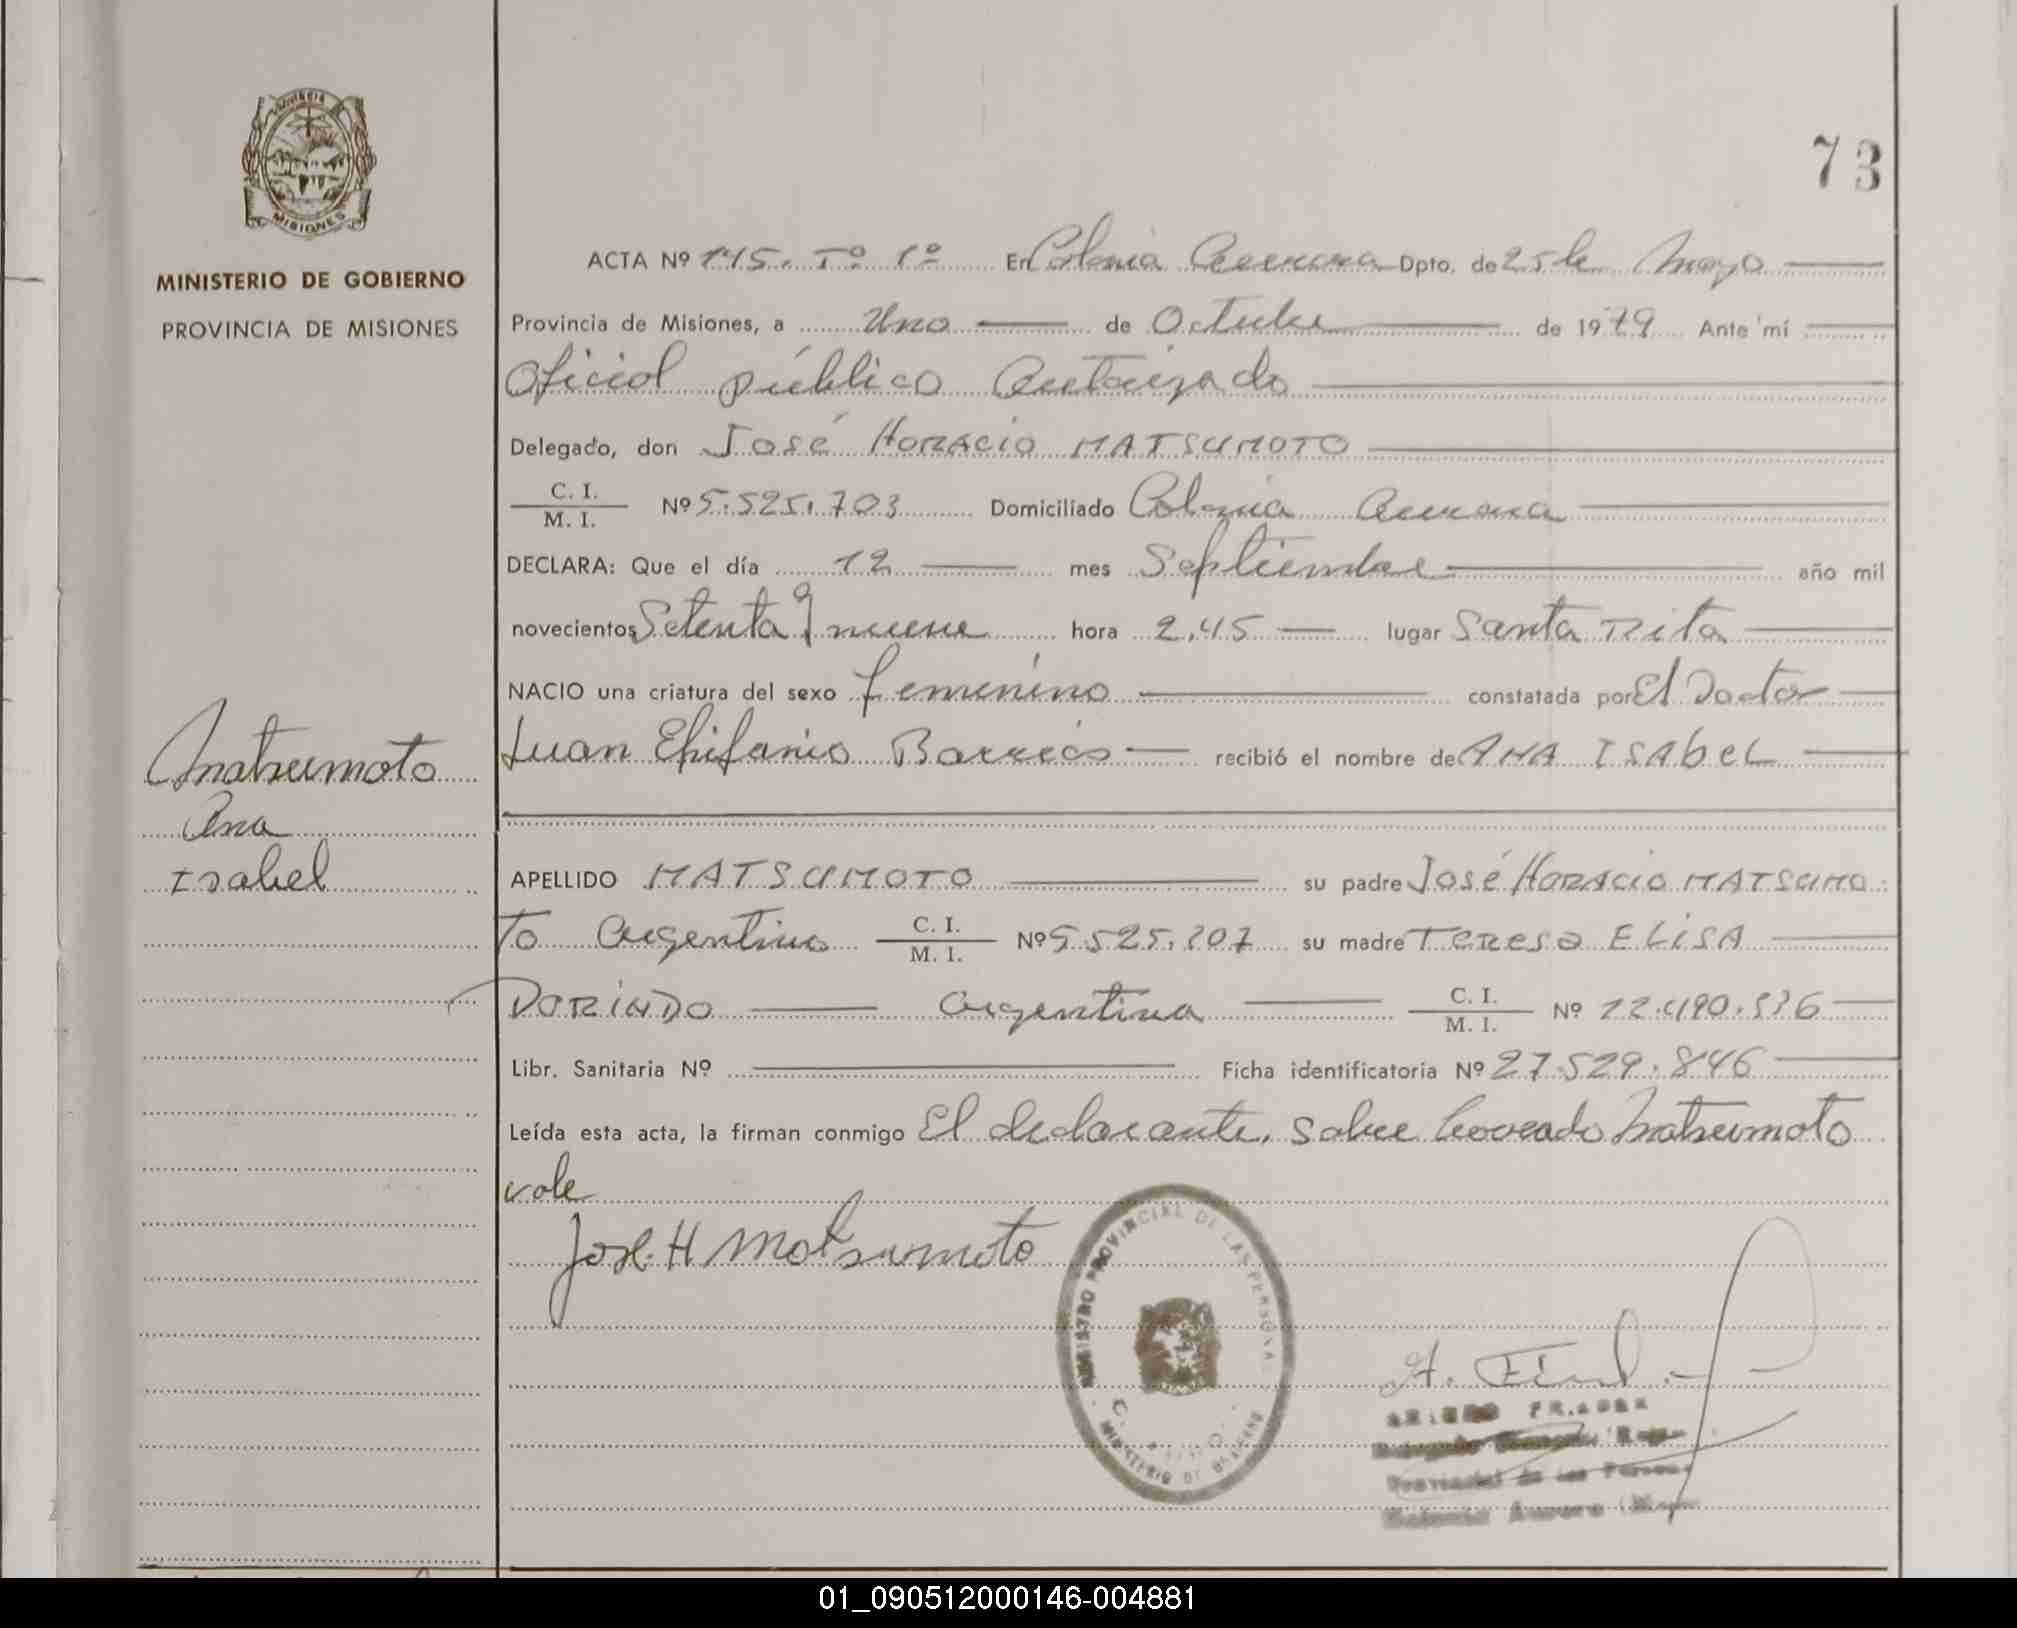 PROVINCIA
MISIONES
MINISTERIO DE GOBIERNO
PROVINCIA DE MISIONES
Matsumoto
Ana
Isabel
73
ACTA Nº 145. Tº 1º En Colonia Aurora Dpto. de 25 de Mayo
Provincia de Misiones, a Uno de Octubre de 1979 Ante mí
Oficial público Autorizado
Delegado, don José HORACIO MATSUMOTO
C. I.
M. I. Nº 5.525.703 Domiciliado Colonia Aurora
DECLARA: Que el día 12 mes Septiembre año mil
novecientos Setenta y nueve hora 2,45 lugar Santa Rita
NACIO una criatura del sexo femenino constatada por El Doctor
Juan Epifanio Barrios recibió el nombre de ANA ISAbeL
APELLIDO MATSUMOTO su padre José HORACIO MATSUMO
TO Argentino C. I.
M. I. Nº 5.525.707 su madre Teresa ELISA
DORINDO Argentina C. I.
M. I. Nº 12.490.
Libr. Sanitaria Nº Ficha identificatoria Nº 27.529.846
Leída esta acta, la firman conmigo El declarante, sobre borrado Matsumoto
vale
José H Matsumoto
REGISTRO PROVINCIAL DE LAS PERSONAS
MINISTERIO DE GOBIERNO
Provincial de las Personas
Colonia Aurora
01_090512000146-004881